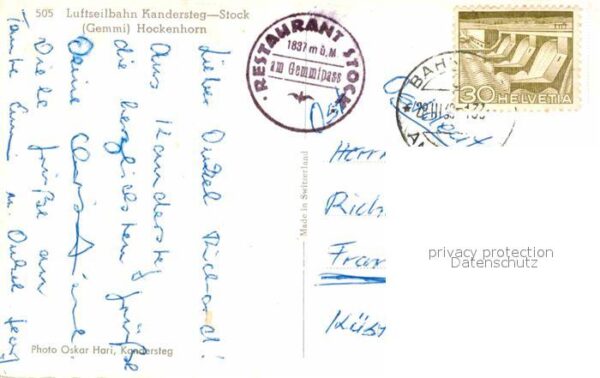 505 Luftseilbahn Kandersteg—Stock
(Gemmi) Hockenhorn
RESTAURANT STOCK
1837 m ü.M
am Gemmipass
BAH
30 HELVETIA
Lieber Onkel Richard!
Aus Kandersteg
die herzlichsten Grüße
Deine
Viele Grüße an
Tante Emmi u. Onkel Georg
Made in Switzerland
Herrn
Rich
Fran
Küs
privacy protection
Datenschutz
Photo Oskar Hari, Kandersteg